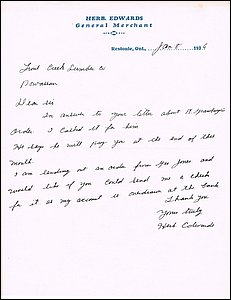 HERB. EDWARDS
General Merchant
Restoule, Ont., Jan 8 19
Trout Creek Lumber Co
Powassan
Dear Sir
In answer to your letter about
order I called it for him
He says he will pay you at the end of this
month.
I am sending out an order from Jones and
would like if you could send me a check
for it as my account is overdrawn at the bank
Thank you
Yours truly
Herb Edwards